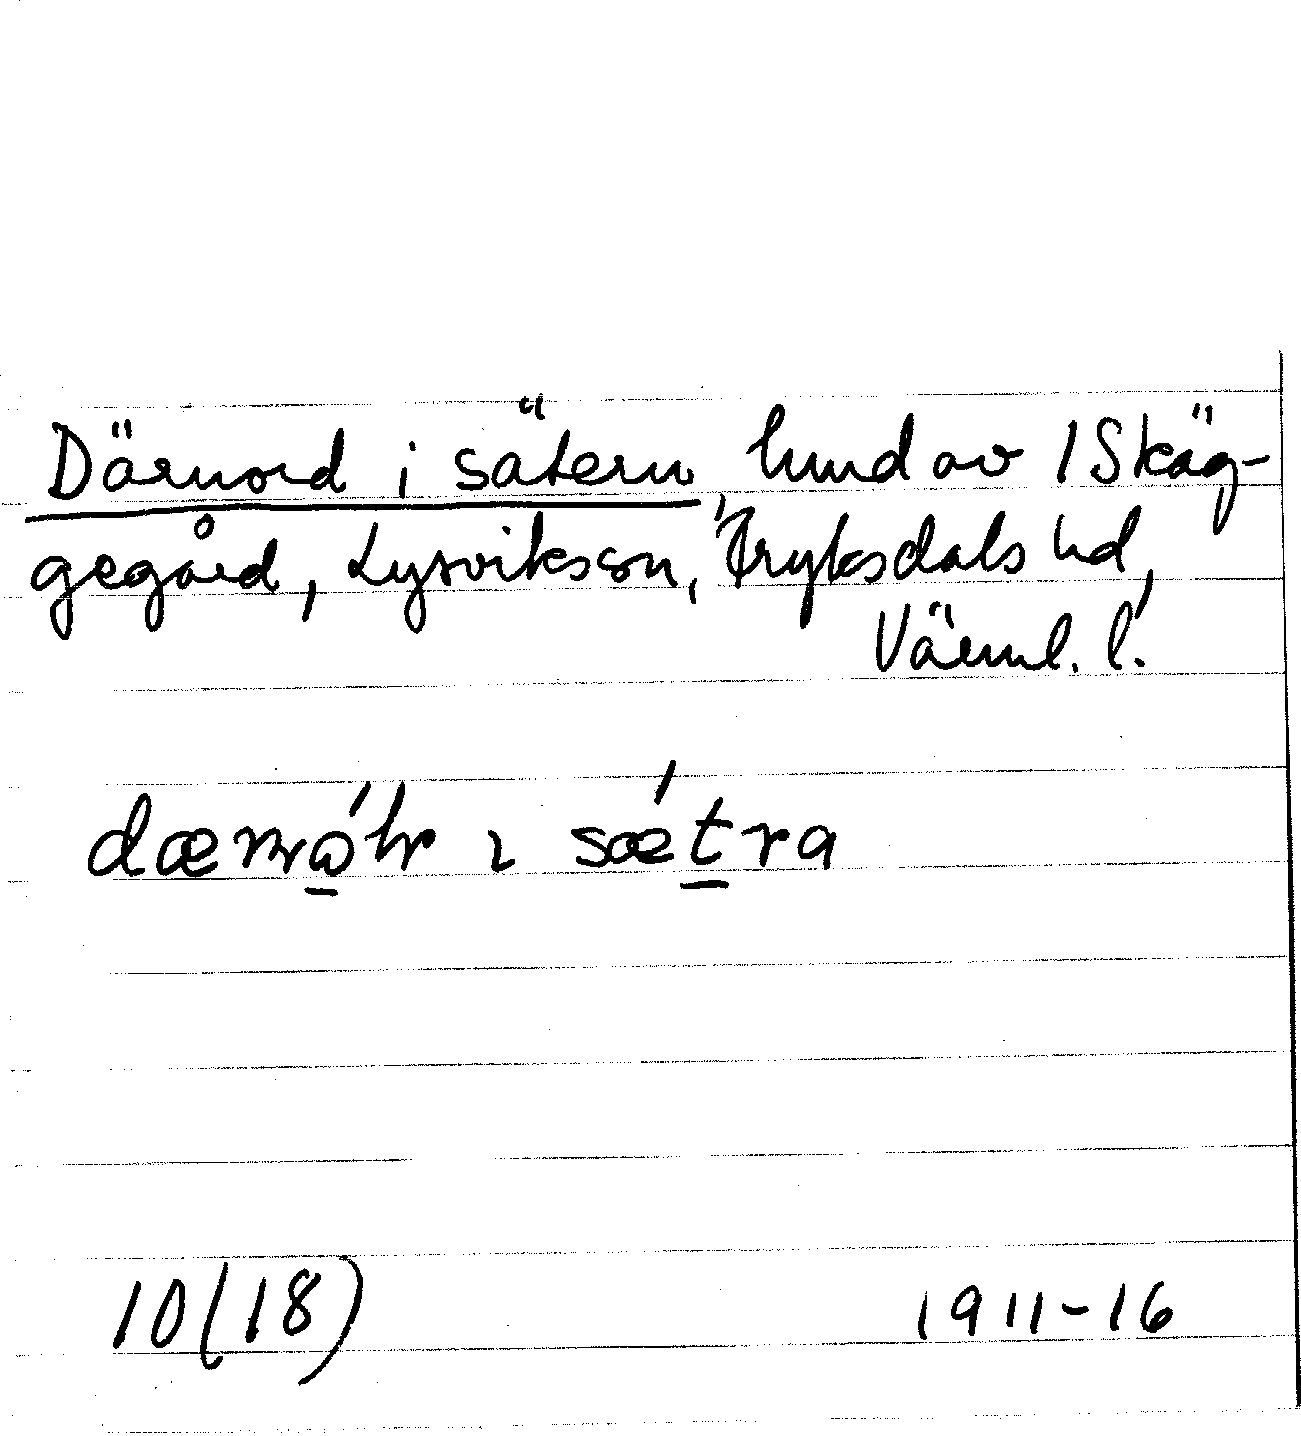 Därnord i sätern, hmd av 1 Skäg-
gegård, Lysviks sn, Fryksdals hd,
Värml. l.
sǽtra
10(18) 1911-16